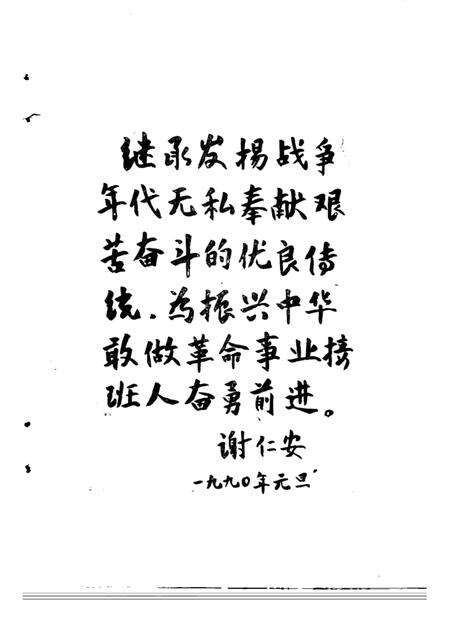 继承发揚战争
年代无私奉献艰
苦奋斗的优良传
统.为振兴中华
敢做革命事业接
班人奋勇前进。
谢仁安
一九九〇年元旦